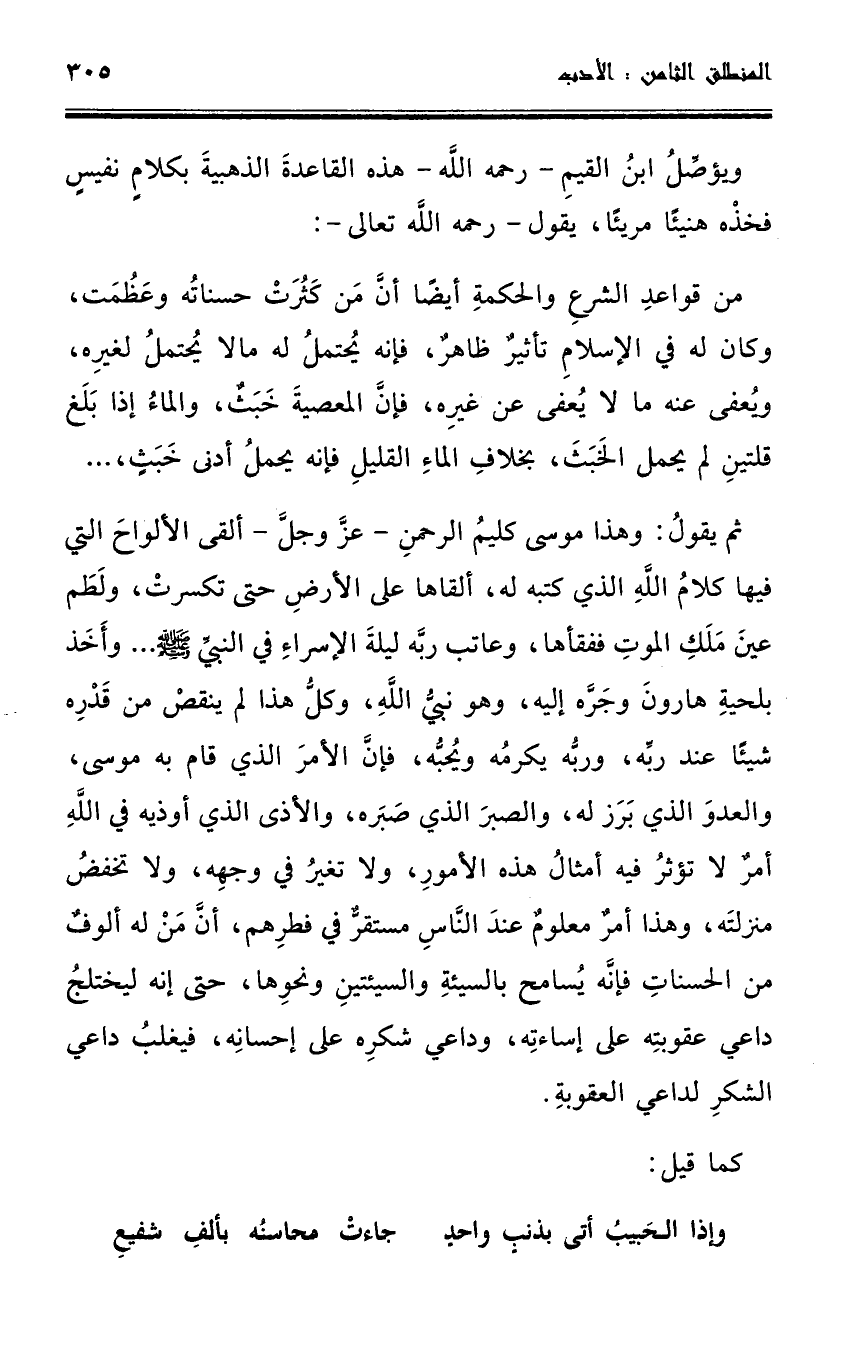 المنطلق الثامن : الأدب ٣٠٥
ويؤصِّلُ ابنُ القيمِ - رحمه اللَّه - هذه القاعدةَ الذهبيةَ بكلامٍ نفيسٍ
فخذْه هنيئًا مريئًا، يقول - رحمه اللَّه تعالى -:
من قواعدِ الشرعِ والحكمةِ أيضًا أنَّ مَن كَثُرَتْ حسناتُه وعَظُمَت،
وكان له في الإسلامِ تأثيرٌ ظاهرٌ، فإنه يُحتملُ له مالا يُحتملُ لغيرِه،
ويُعفى عنه ما لا يُعفى عن غيرِه، فإنَّ المعصيةَ خَبَثٌ، والماءُ إذا بَلَغ
قلتينِ لم يحمل الخَبَثَ، بخلافِ الماءِ القليلِ فإنه يحملُ أدنى خَبَثٍ،...
ثم يقولُ: وهذا موسى كليمُ الرحمنِ - عزَّ وجلَّ - ألقى الألواحَ التي
فيها كلامُ اللَّهِ الذي كتبه له، ألقاها على الأرضِ حتى تكسرتْ، ولَطَم
عينَ مَلَكِ الموتِ ففقأها، وعاتب ربَّه ليلةَ الإسراءِ في النبيِّ ﷺ... وأَخَذ
بلحيةِ هارونَ وجَرَّه إليه، وهو نبيُّ اللَّهِ، وكلُّ هذا لم ينقصْ من قَدْرِه
شيئًا عند ربِّه، وربُّه يكرمُه ويُحبُّه، فإنَّ الأمرَ الذي قام به موسى،
والعدوَ الذي بَرَز له، والصبرَ الذي صَبَره، والأذى الذي أوذيه في اللَّهِ
أمرٌ لا تؤثرُ فيه أمثالُ هذه الأمورِ، ولا تغيرُ في وجهِه، ولا تخفضُ
منزلتَه، وهذا أمرٌ معلومٌ عندَ النَّاسِ مستقرٌّ في فطرِهم، أنَّ مَنْ له ألوفٌ
من الحسناتِ فإنَّه يُسامح بالسيئةِ والسيئتينِ ونحوِها، حتى إنه ليختلجُ
داعي عقوبتِه على إساءتِه، وداعي شكرِه على إحسانِه، فيغلبُ داعي
الشكرِ لداعي العقوبةِ.
كما قيل:
وإذا الحَبيبُ أتى بذنبٍ واحدٍ جاءتْ محاسنُه بألفِ شفيعِ